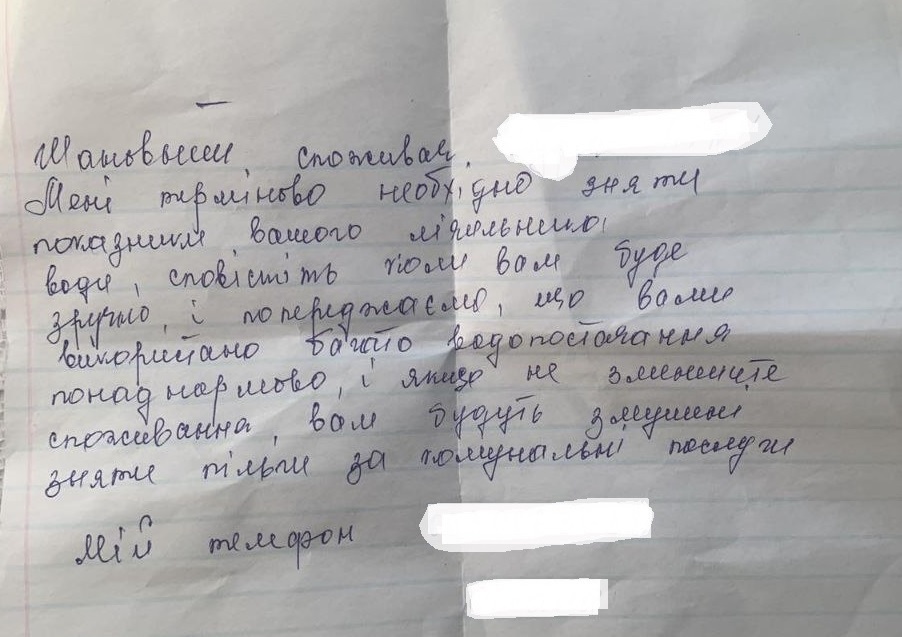 Шановный споживач,
Мені терміново необхідно зняти
показники вашого лічильника
води, сповістіть коли вам буде
зручно, і попереджаємо, що вами
використано багато водопостачання
понад нормово, і якщо не зменшите
споживання, вам будуть змушені
зняти пільги за комунальні послуги
Мій телефон